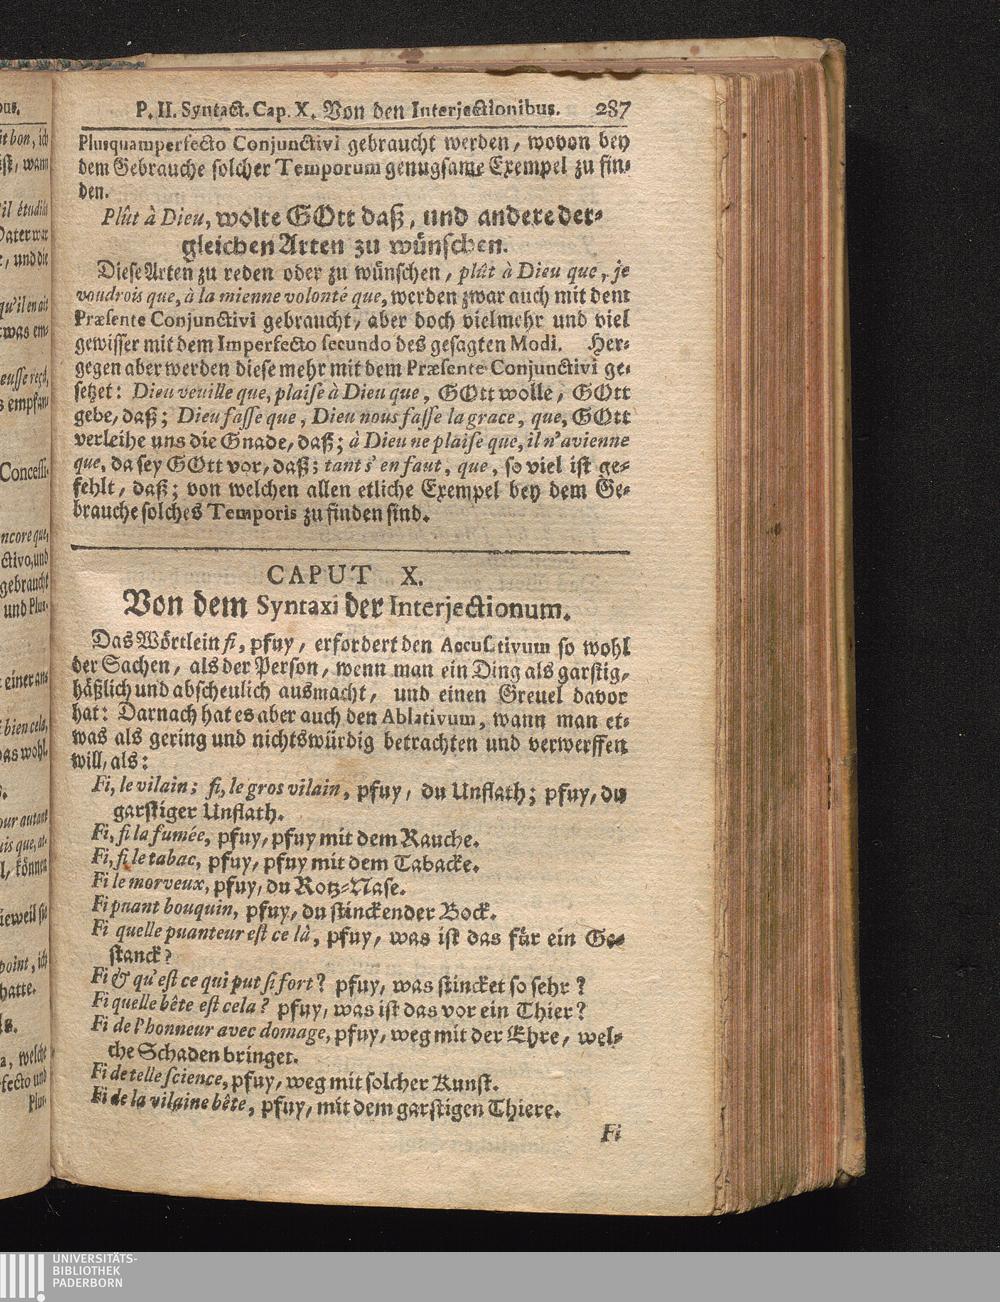 P. II. Syntact. Cap. X. Von den Interjectionibus. 287
Plusquamperfecto Conjunctivi gebraucht werden, wovon bey
dem Gebrauche solcher Temporum genugsame Exempel zu fin-
den.
Plût à Dieu, wolte GOtt daß, und andere der-
gleichen Arten zu wünschen.
Diese Arten zu reden oder zu wünschen, plût à Dieu que, je
voudrois que, à la mienne volonté que, werden zwar auch mit dem
Præsente Conjunctivi gebraucht, aber doch vielmehr und viel
gewisser mit dem Imperfecto secundo des gesagten Modi. Her-
gegen aber werden diese mehr mit dem Præsente Conjunctivi ge-
setzet: Dieu veuille que, plaise à Dieu que, GOtt wolle, GOtt
gebe, daß; Dieu fasse que, Dieu nous fasse la grace, que, GOtt
verleihe uns die Gnade, daß; à Dieu ne plaise que, il n'avienne
que, da sey GOtt vor, daß; tant s'en faut, que, so viel ist ge-
fehlt, daß; von welchen allen etliche Exempel bey dem Ge-
brauche solches Temporis zu finden sind.
CAPUT X.
Von dem Syntaxi der Interjectionum.
Das Wörtlein fi, pfuy, erfordert den Accusativum so wohl
der Sachen, als der Person, wenn man ein Ding als garstig,
häßlich und abscheulich ausmacht, und einen Greuel davor
hat: Darnach hat es aber auch den Ablativum, wann man et-
was als gering und nichtswürdig betrachten und verwerffen
will, als:
Fi, le vilain; fi, le gros vilain, pfuy, du Unflath; pfuy, du
garstiger Unflath.
Fi, fi la fumée, pfuy, pfuy mit dem Rauche.
Fi, fi le tabac, pfuy, pfuy mit dem Tabacke.
Fi le morveux, pfuy, du Rotz-Nase.
Fi puant bouquin, pfuy, du stinckender Bock.
Fi quelle puanteur est ce là, pfuy, was ist das für ein Ge-
stanck?
Fi & qu'est ce qui put si fort? pfuy, was stincket so sehr?
Fi quelle bête est cela? pfuy, was ist das vor ein Thier?
Fi de l'honneur avec domage, pfuy, weg mit der Ehre, wel-
che Schaden bringet.
Fi de telle science, pfuy, weg mit solcher Kunst.
Fi de la vilaine bête, pfuy, mit dem garstigen Thiere.
Fi
UNIVERSITÄTS-
BIBLIOTHEK
PADERBORN